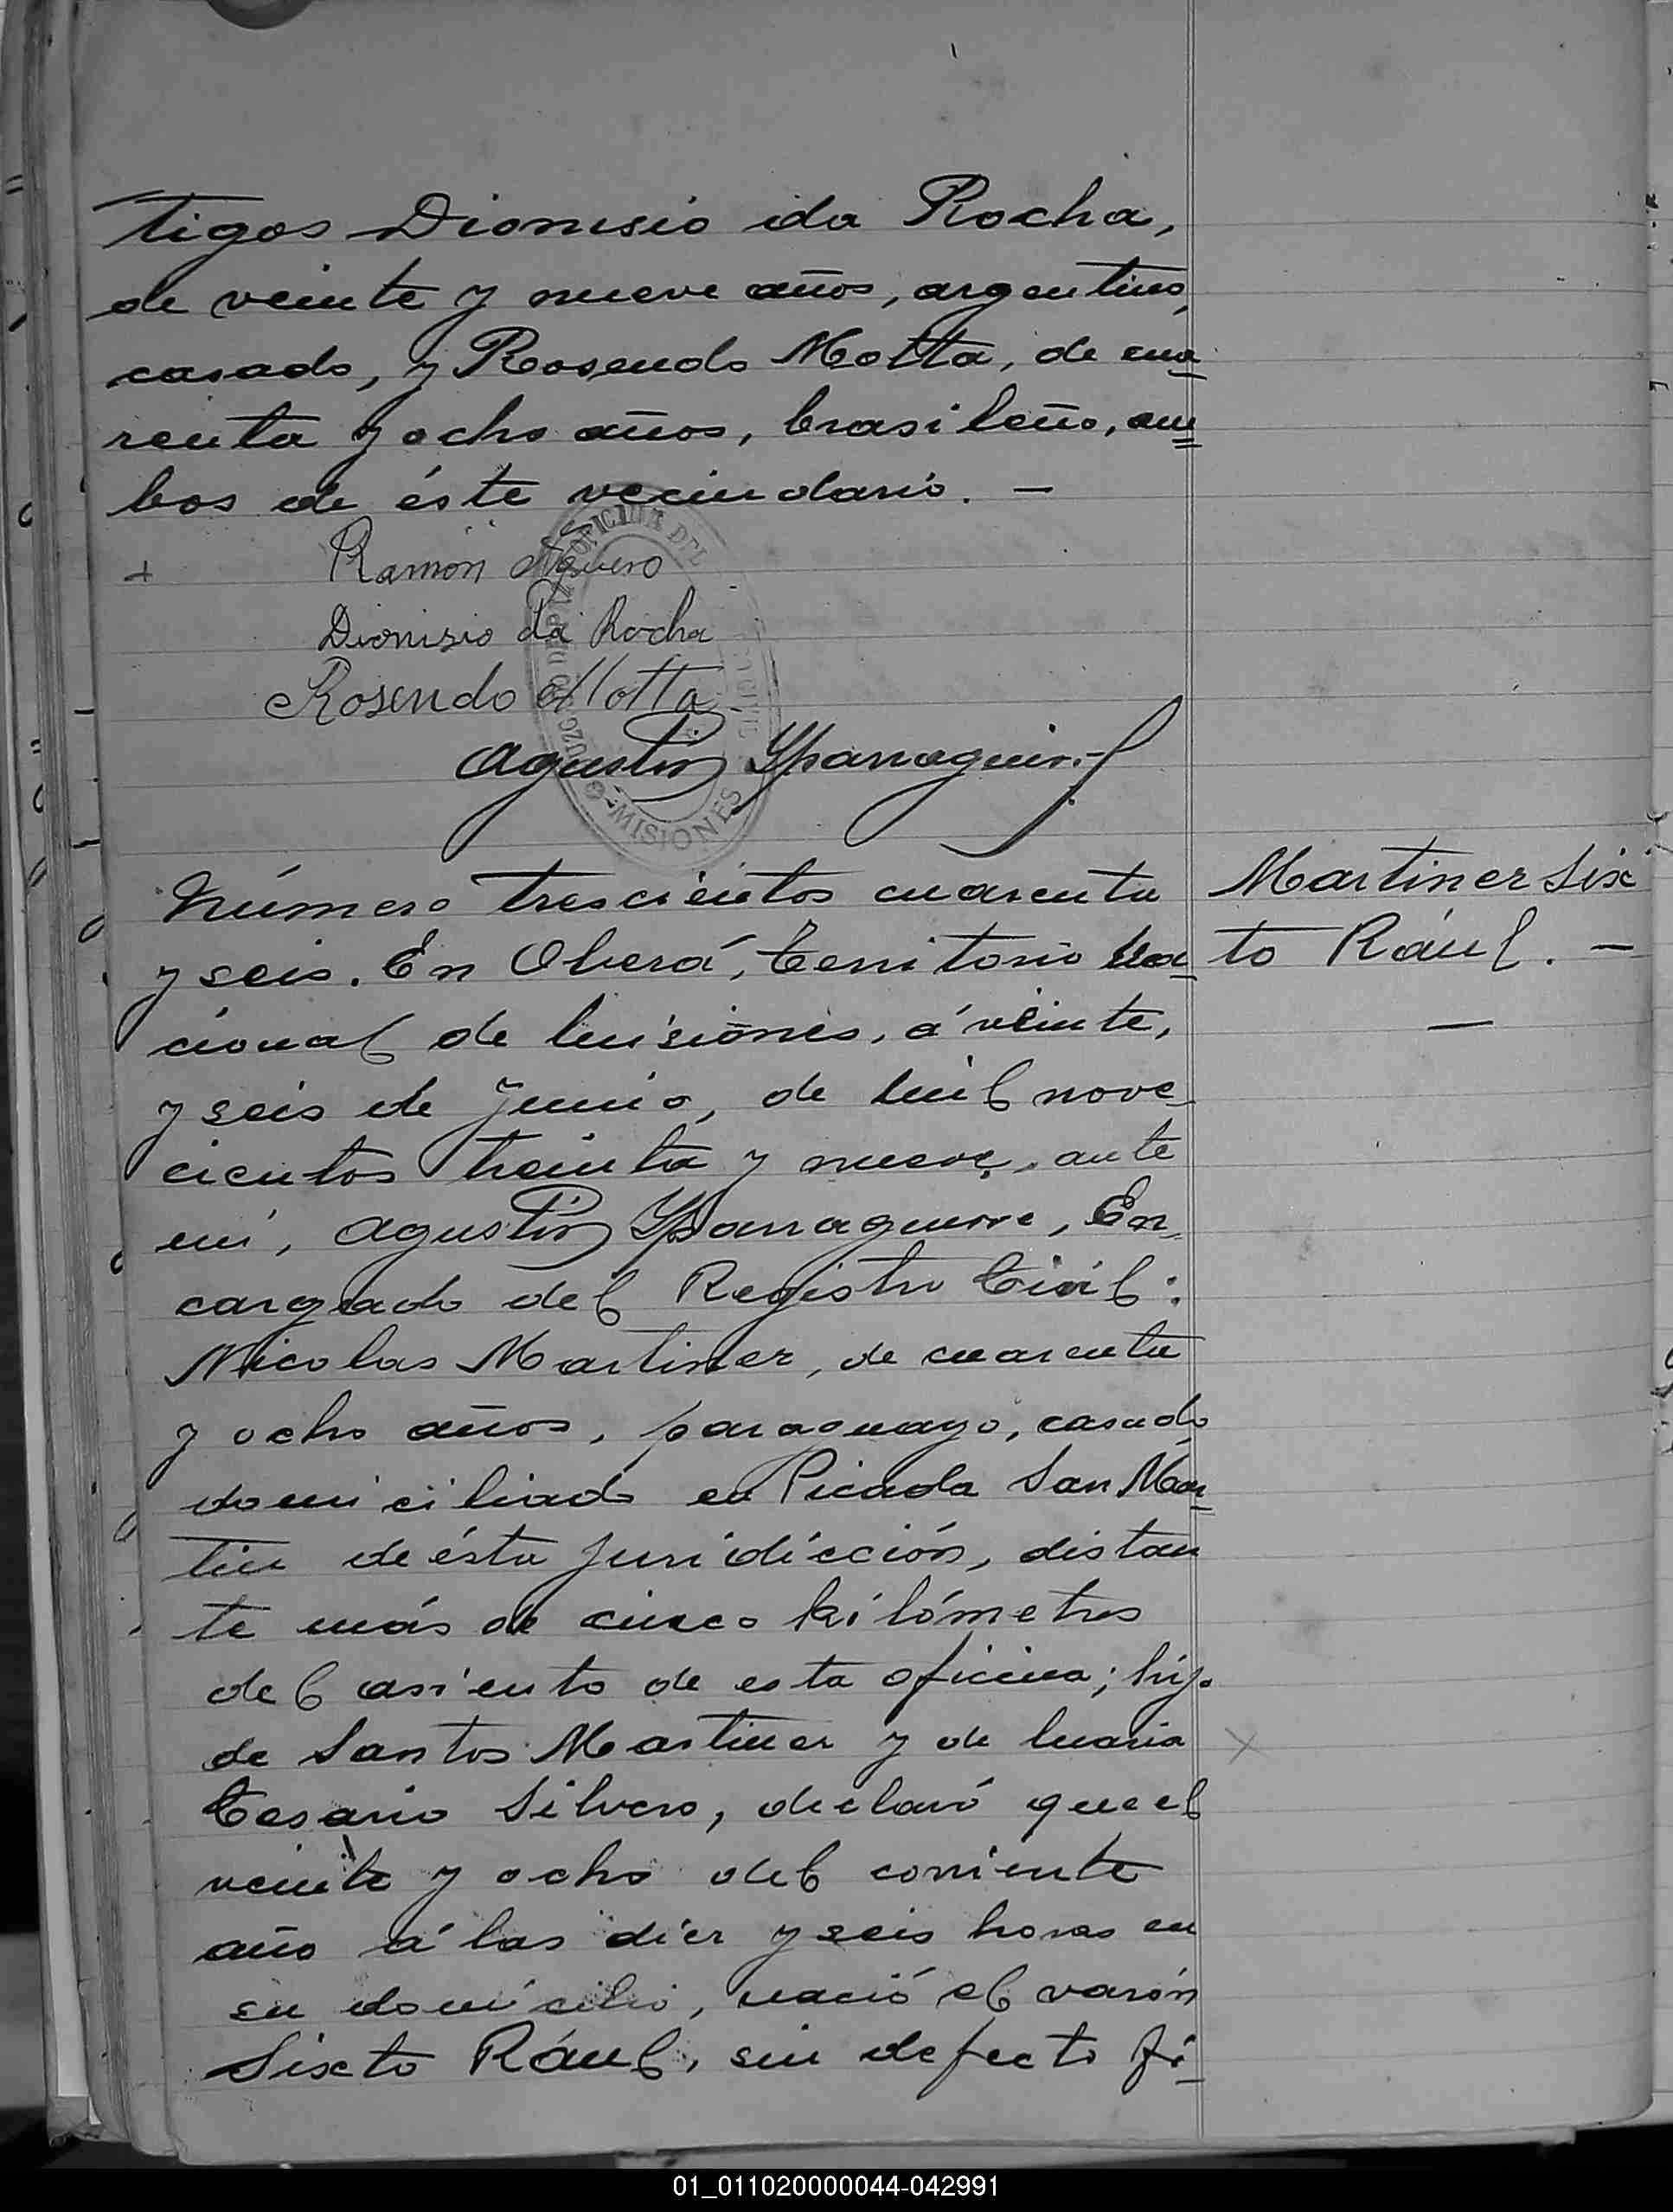 tigos Dionisio da Rocha,
de veinte y nueve años, argentino,
casado, y Rosendo Motta, de cua=
renta y ocho años, brasileño, am=
bos de éste vecindario. —
Ramón Agüero
Dionisio da Rocha
Rosendo Motta
Agustin Yparraguirre
OFICINA DEL
CIVIL
MISIONES
Número trescientos cuarenta
y seis. En Oberá, Territorio Na=
cional de Misiones, á veinte,
y seis de Junio, de mil nove-
cientos treinta y nueve, ante
mi, Agustin Yparraguirre, En=
cargado del Registro Civil:
Nicolas Martinez, de cuarenta
y ocho años, paraguayo, casado,
domiciliado en Picada San Mar=
tin de ésta juridicción, distan
te más de cinco kilómetros
del asiento de esta oficina; hijo
de Santos Martinez y de Maria
Cesaria Silvero, declaró que el
veinte y ocho del corriente
año á las diez y seis horas en
su domicilio, nació el varón
Sixto Rául, sin defecto fi=
Martinez Six
to Rául. —
01_011020000044-042991